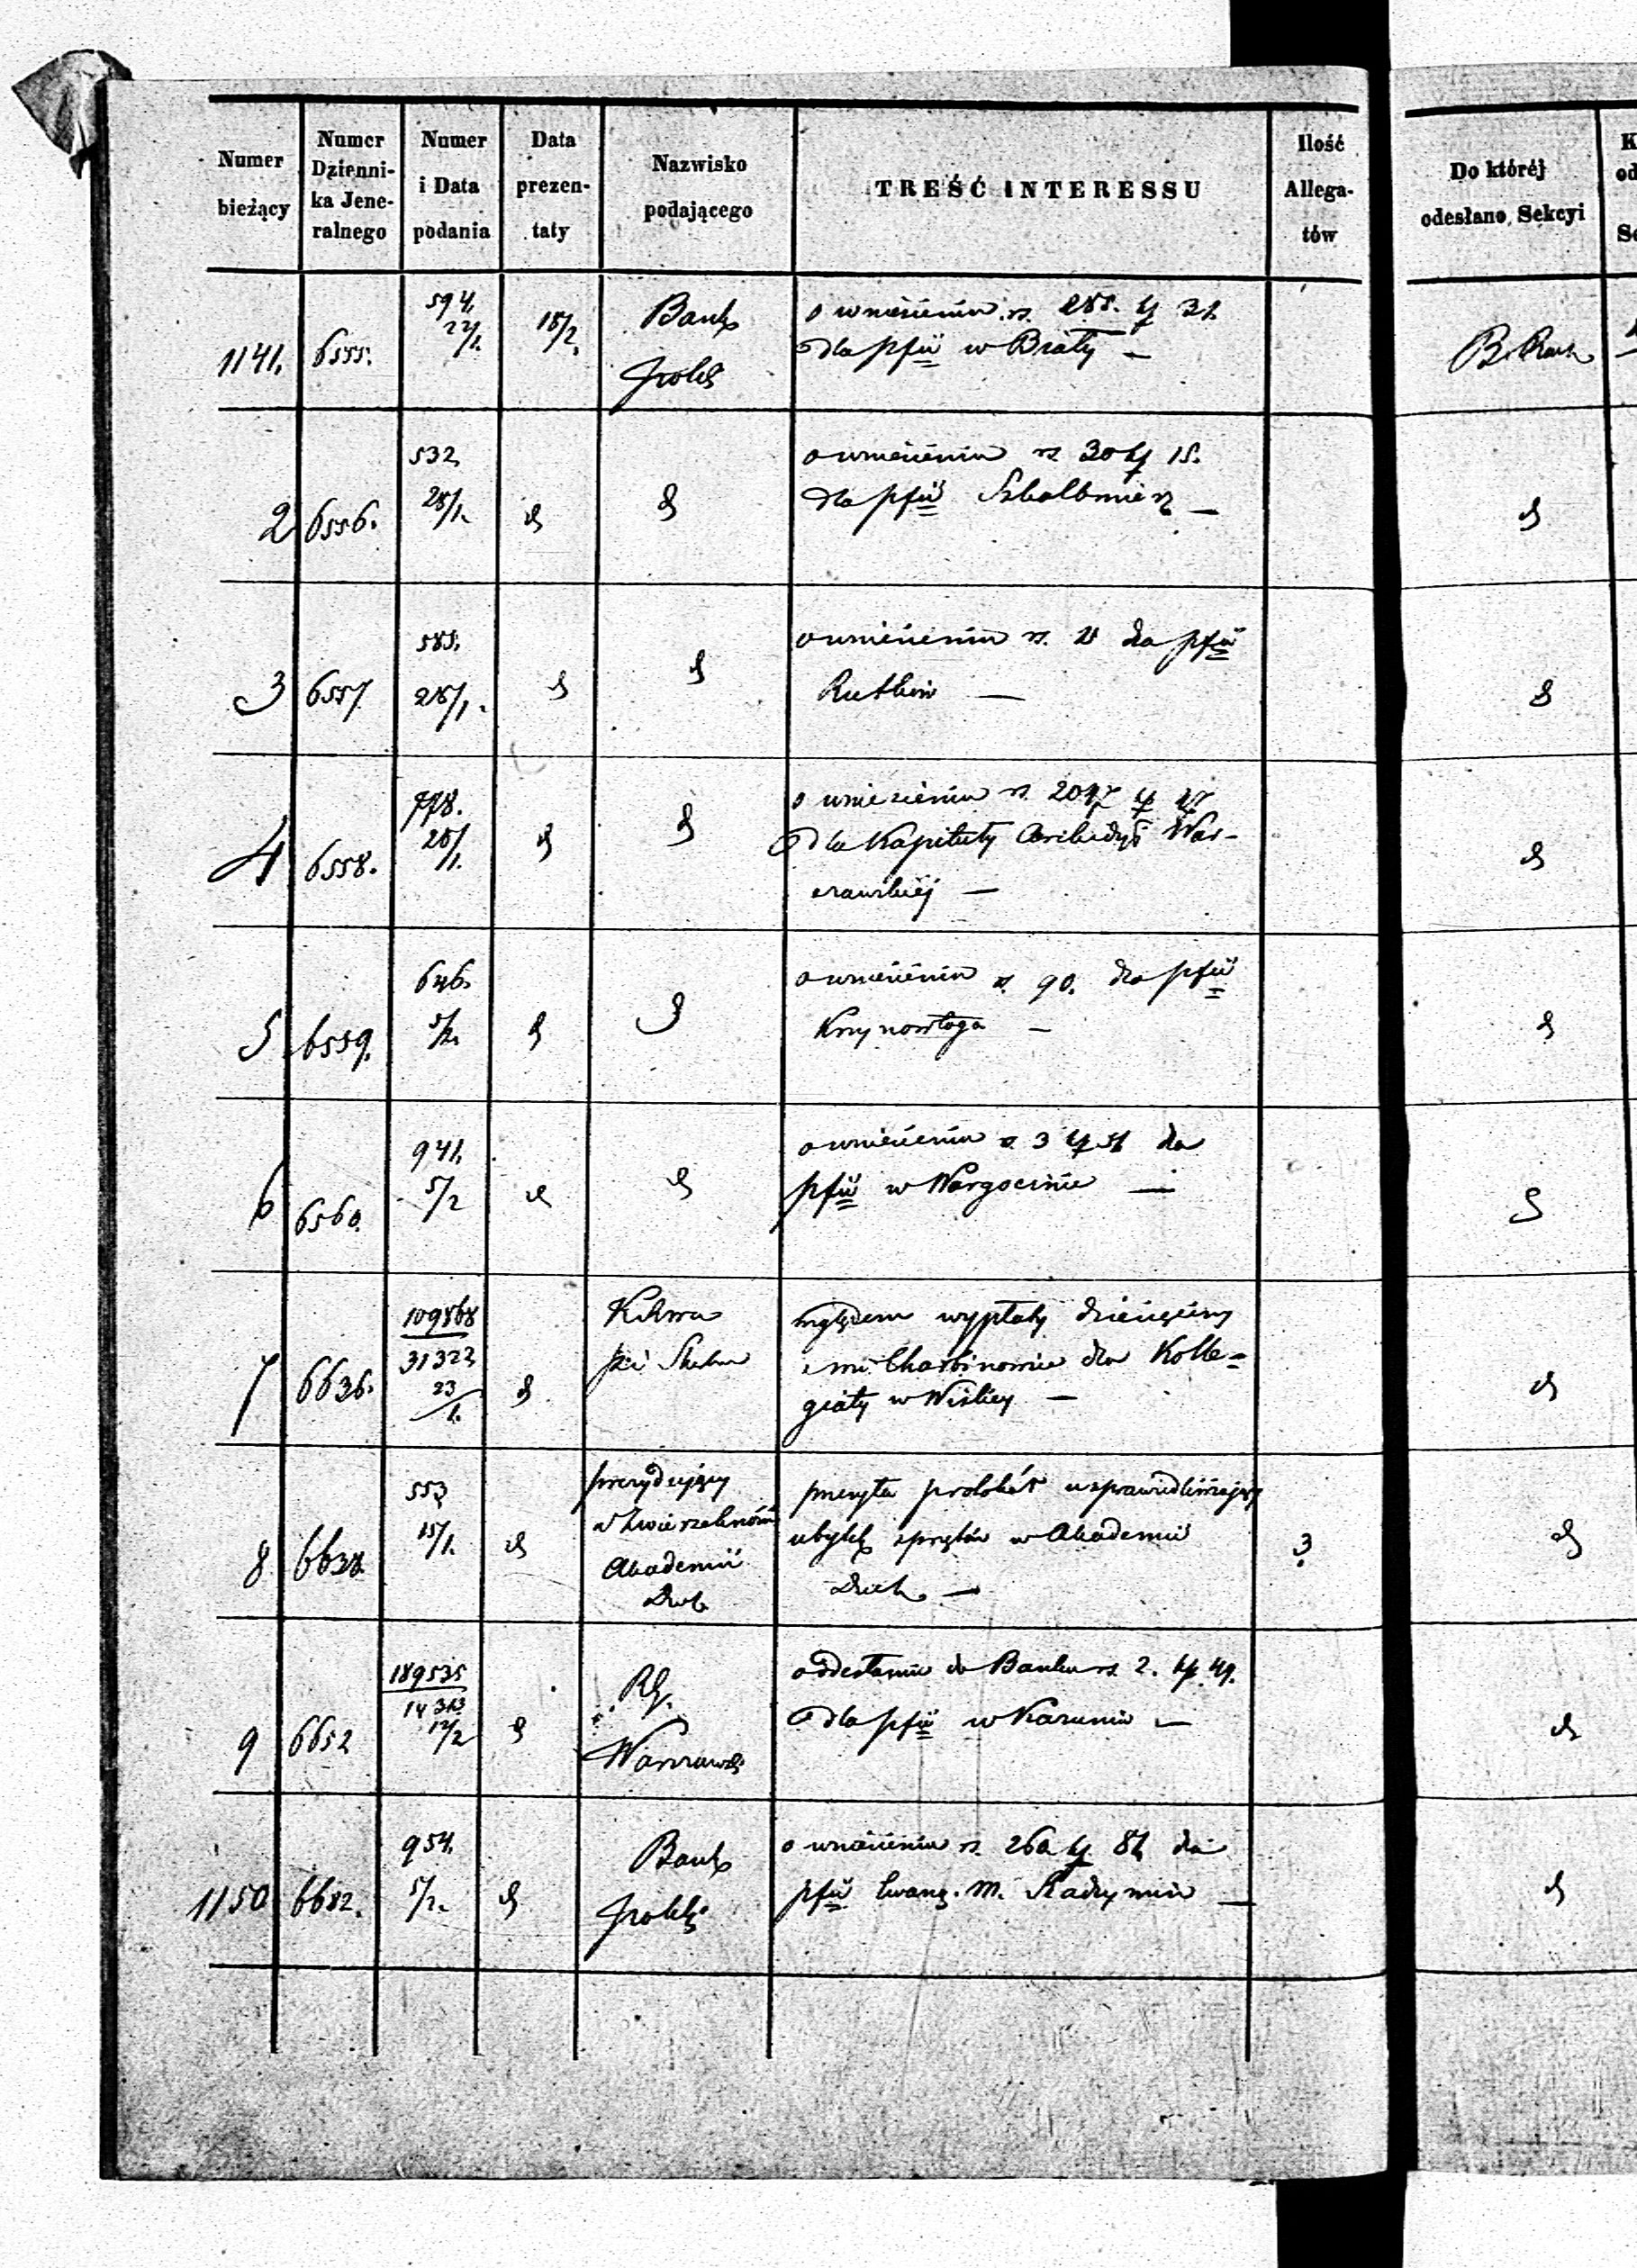 Numer bieżący
Numer Dziennika Jeneralnego
Numer i Data podania
Data prezentaty
Nazwisko podającego
TREŚĆ INTERESSU
Ilość Allegatów
Do któréj odesłano Sekcyi
1141. 6555. 594. 22/1. 18/2. Bank Polsk o wniesieniu rs. 288. k 31.
dla pfii w Biały — B. Rach
2 6556. 532 28/1. o wniesieniu rs 30 k 15.
dla pfii Szkalbmierz —
3 6557 585. 28/1. o wniesieniu rs. dla pfii
Rutkow —
4 6558. 778. 28/1. o wniesieniu rs. 2047 k
dla Kapituły Archidyi War-
szawskiéj —
5 6559. 646. 5/2. o wniesieniu rs. 90. dla pfii
Krzynowłoga —
6 6560. 941. 5/2 o wniesieniu rs. 3 k 51 dla
pfii w Wargocinie —
7 6636. 109868 31323 23/1. względem wypłaty dziesięciny
Charbinowie dla Kolle-
giaty w Wiślicy —
8 6638. 553 15/1. prezydujący w Zwierzchności Akademii Duch przesyła protokół usprawiedliwiający
ubytek sprzętów w Akademii
Duch — 3
9 6652 189535 14313 12/2 RG. Warszaws o odesłaniu do Banku rs. 2. k. 49.
dla pfii w Karuniu —
1150 6682. 954. 5/2. Bank Polsk o wniesieniu rs. 260 k 87 dla
pfii Ewang. m. Radzymin —